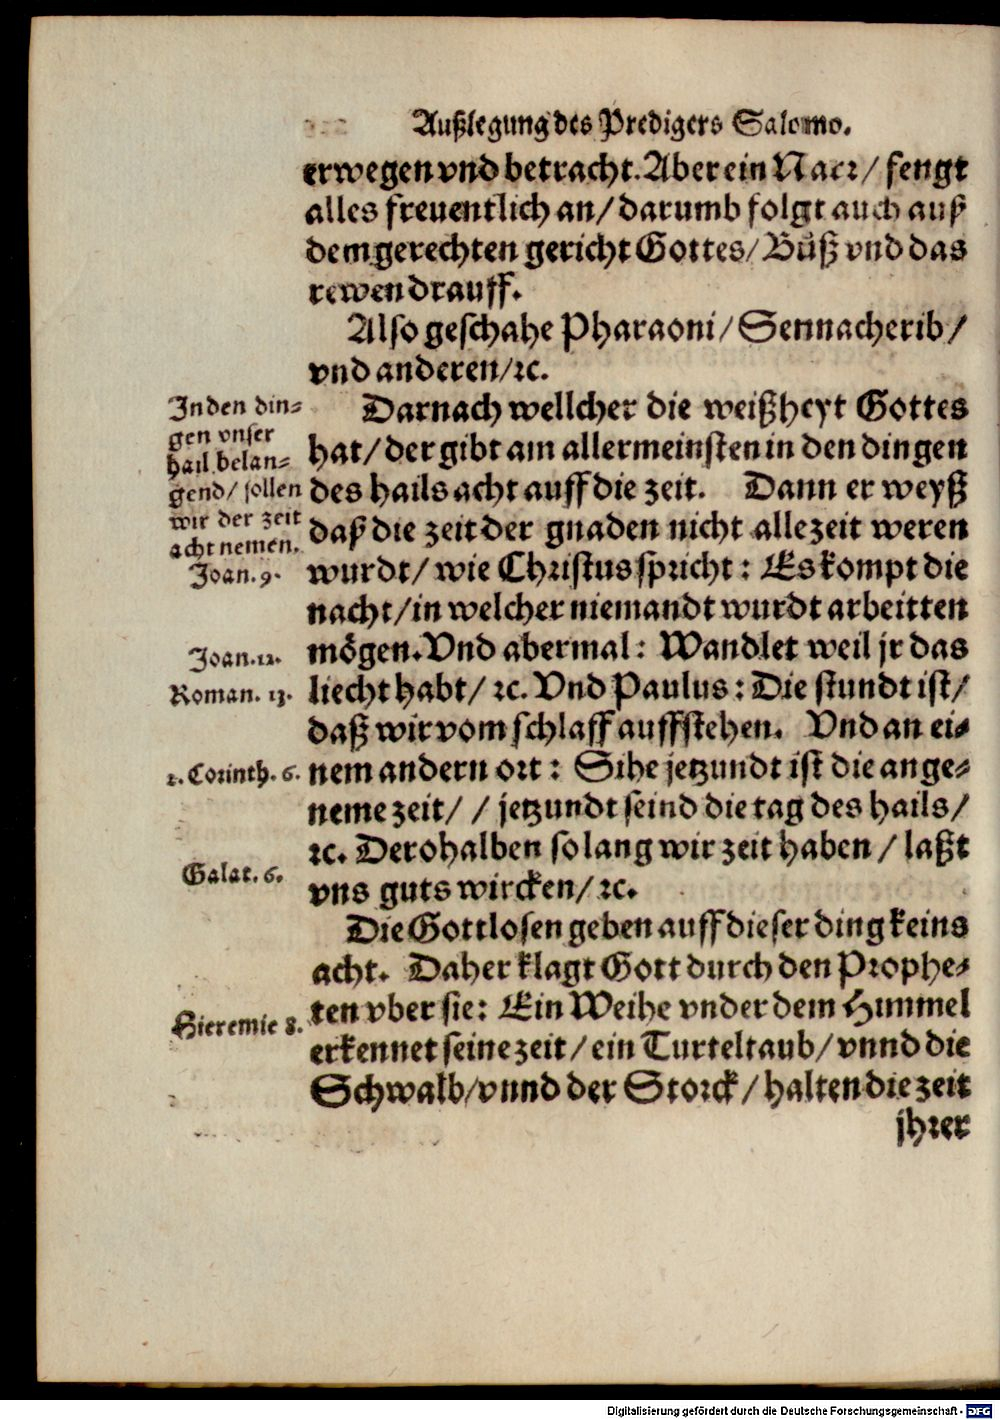 Außlegung des Predigers Salomo.
erwegen vnd betracht. Aber ein Narr / fengt
alles freuentlich an / darumb folgt auch auß
dem gerechten gericht Gottes / Büß vnd das
rewen drauff.
Also geschahe Pharaoni / Sennacherib /
vnd anderen / ꝛc.
Darnach wellcher die weißheyt Gottes
hat / der gibt am allermeinsten in den dingen
des hails acht auff die zeit. Dann er weyß
daß die zeit der gnaden nicht allezeit weren
wurdt / wie Christus spricht: Es kompt die
nacht / in welcher niemandt wurdt arbeitten
mögen. Vnd abermal: Wandlet weil jr das
liecht habt / ꝛc. Vnd Paulus: Die stundt ist /
daß wir vom schlaff auffstehen. Vnd an ei⸗
nem andern ort: Sihe jetzundt ist die ange⸗
neme zeit / / jetzundt seind die tag des hails /
ꝛc. Derohalben so lang wir zeit haben / laßt
vns guts wircken / ꝛc.
Die Gottlosen geben auff dieser ding keins
acht. Daher klagt Gott durch den Prophe⸗
ten vber sie: Ein Weihe vnder dem Himmel
erkennet seine zeit / ein Turteltaub / vnnd die
Schwalb / vnnd der Storck / halten die zeit
jhrer
In den din⸗
gen vnser
hail belan⸗
gend / sollen
wir der zeit
acht nemen.
Joan. 9.
Joan. 12.
Roman. 13.
2. Corinth. 6.
Galat. 6.
Hieremie 8.
Digitalisierung gefördert durch die Deutsche Forschungsgemeinschaft - DFG